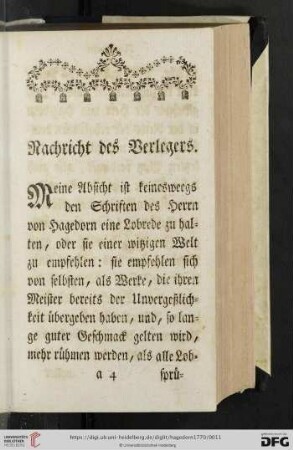 Nachricht des Verlegers.
Meine Absicht ist keinesweegs
den Schriften des Herrn
von Hagedorn eine Lobrede zu hal-
ten, oder sie einer witzigen Welt
zu empfehlen: sie empfehlen sich
von selbsten, als Werke, die ihren
Meister bereits der Unvergeßlich-
keit übergeben haben, und, so lan-
ge guter Geschmack gelten wird,
mehr rühmen werden, als alle Lob-
a 4 sprü-
UNIVERSITÄTS-
BIBLIOTHEK
HEIDELBERG
https://digi.ub.uni-heidelberg.de/diglit/hagedorn1770/0011
© Universitätsbibliothek Heidelberg
gefördert durch die
DFG